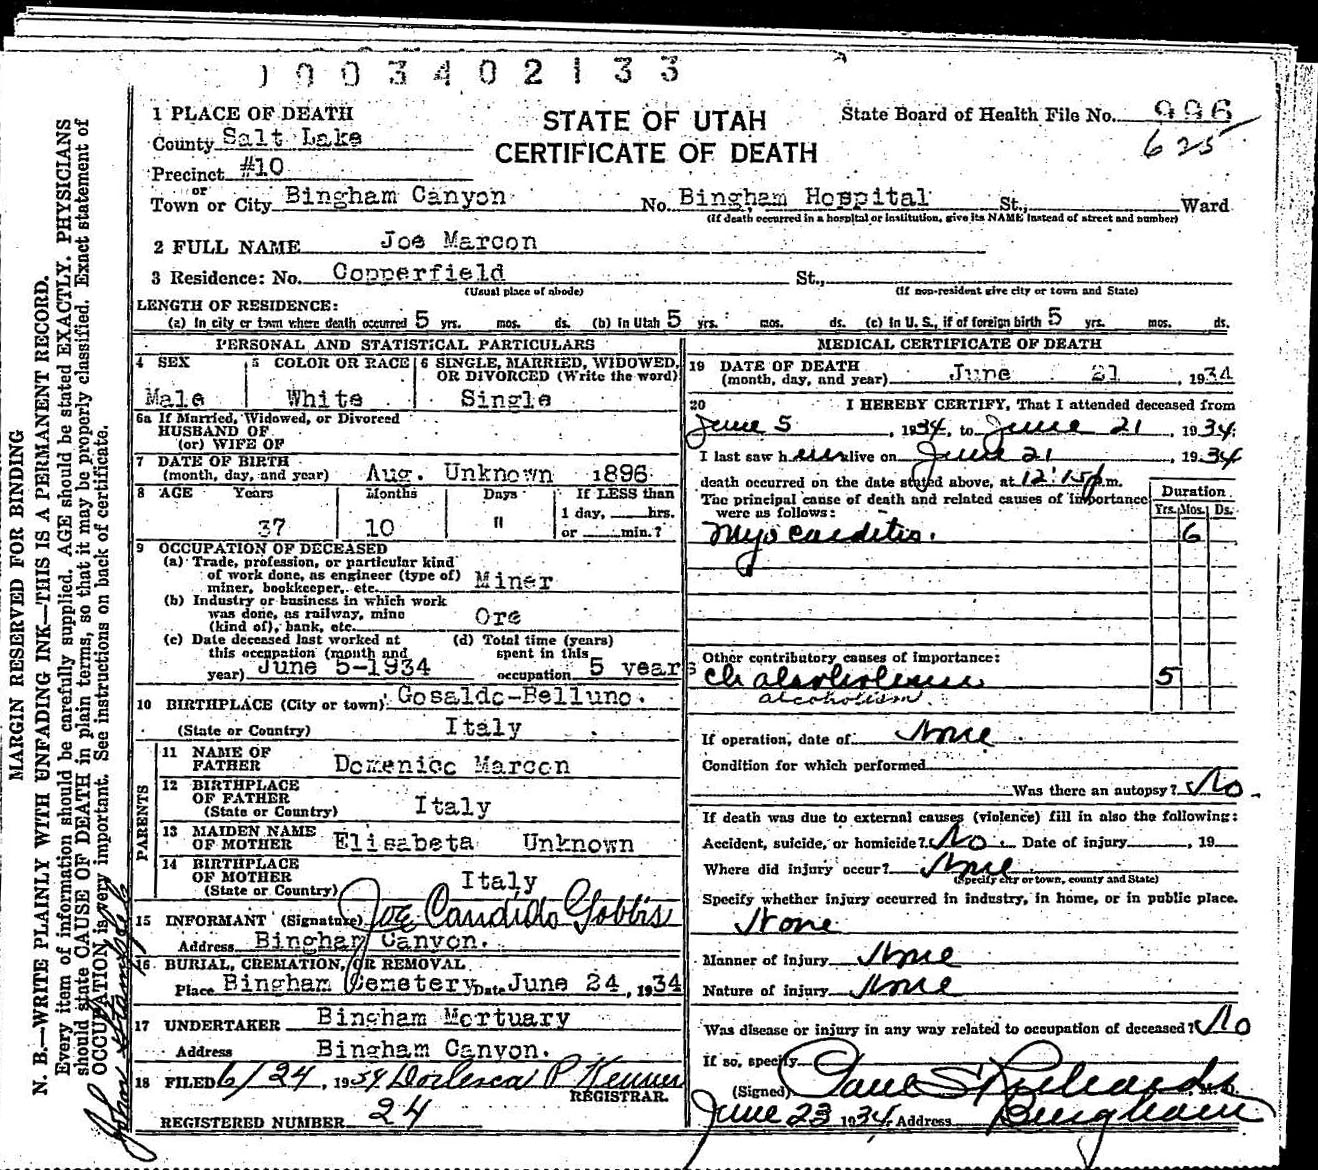 1003402133
1 PLACE OF DEATH
STATE OF UTAH
State Board of Health File No. 996
County Salt Lake
CERTIFICATE OF DEATH
625
Precinct #10
or
Town or City Bingham Canyon No. Bingham Hospital St., Ward
(If death occurred in a hospital or institution, give its NAME instead of street and number)
2 FULL NAME Joe Marcon
3 Residence: No. Copperfield St.,
(Usual place of abode) (If non-resident give city or town and State)
LENGTH OF RESIDENCE:
(a) In city or town where death occurred 5 yrs. mos. ds. (b) In Utah 5 yrs. mos. ds. (c) In U. S., if of foreign birth 5 yrs. mos. ds.
PERSONAL AND STATISTICAL PARTICULARS
4 SEX 5 COLOR OR RACE 6 SINGLE, MARRIED, WIDOWED, OR DIVORCED (Write the word)
Male White Single
6a If Married, Widowed, or Divorced
HUSBAND OF
(or) WIFE OF
7 DATE OF BIRTH
(month, day, and year) Aug. Unknown 1896
8 AGE Years Months Days If LESS than
1 day, hrs.
37 10 " or min.?
9 OCCUPATION OF DECEASED
(a) Trade, profession, or particular kind
of work done, as engineer (type of)
miner, bookkeeper, etc. Miner
(b) Industry or business in which work
was done, as railway, mine
(kind of), bank, etc. Ore
(c) Date deceased last worked at (d) Total time (years)
this occupation (month and spent in this
year) June 5-1934 occupation 5 years
10 BIRTHPLACE (City or town) Gosaldo-Belluno.
(State or Country) Italy
PARENTS
11 NAME OF
FATHER Domenico Marcon
12 BIRTHPLACE
OF FATHER
(State or Country) Italy
13 MAIDEN NAME
OF MOTHER Elisabeta Unknown
14 BIRTHPLACE
OF MOTHER
(State or Country) Italy
15 INFORMANT (Signature) Joe Candido Gobbis
Address Bingham Canyon.
16 BURIAL, CREMATION, OR REMOVAL
Place Bingham Cemetery Date June 24, 1934
17 UNDERTAKER Bingham Mortuary
Address Bingham Canyon.
18 FILED 6/24, 1934 P
REGISTRAR.
REGISTERED NUMBER 24
MEDICAL CERTIFICATE OF DEATH
19 DATE OF DEATH
(month, day, and year) June 21, 1934
20 I HEREBY CERTIFY, That I attended deceased from
June 5, 1934, to June 21, 1934.
I last saw h alive on June 21, 1934
death occurred on the date stated above, at 12:15 p.m.
The principal cause of death and related causes of importance
were as follows:
Duration
Yrs. Mos. Ds.
Myocarditis. 6
Other contributory causes of importance:
Ch alcoholism 5
alcoholism
If operation, date of None
Condition for which performed
Was there an autopsy? No.
If death was due to external causes (violence) fill in also the following:
Accident, suicide, or homicide? No. Date of injury , 19
Where did injury occur? None
(Specify city or town, county and State)
Specify whether injury occurred in industry, in home, or in public place.
None
Manner of injury None
Nature of injury None
Was disease or injury in any way related to occupation of deceased? No
If so, specify
(Signed) Paul S Richards M. D.
June 23 1934. Address Bingham
MARGIN RESERVED FOR BINDING
N. B.—WRITE PLAINLY WITH UNFADING INK—THIS IS A PERMANENT RECORD.
Every item of information should be carefully supplied. AGE should be stated EXACTLY. PHYSICIANS
should state CAUSE OF DEATH in plain terms, so that it may be properly classified. Exact statement of
OCCUPATION is very important. See instructions on back of certificate.